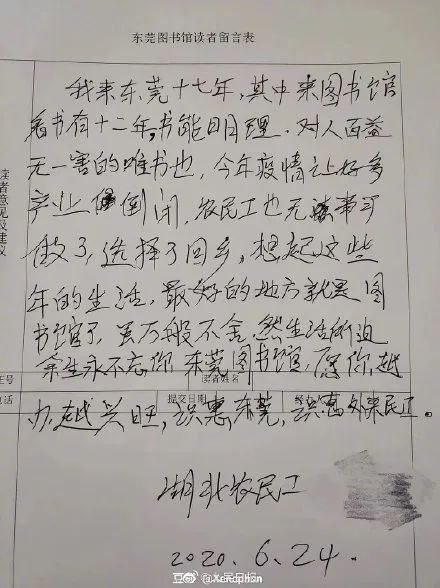 东莞图书馆读者留言表
读者意见及建议
我来东莞十七年,其中来图书馆
看书有十二年,书能明理,对人百益
无一害的唯书也,今年疫情让好多
产业倒闭,农民工也无事可
做了,选择了回乡,想起这些
年的生活,最好的地方就是图
书馆了,虽万般不舍,然生活所迫
余生永不忘你,东莞图书馆,愿你越
证号 读者姓名
办越兴旺,识惠东莞,识惠外来民工。
电话 提交日期
湖北农民工
2020.6.24.
豆
@Xendphan